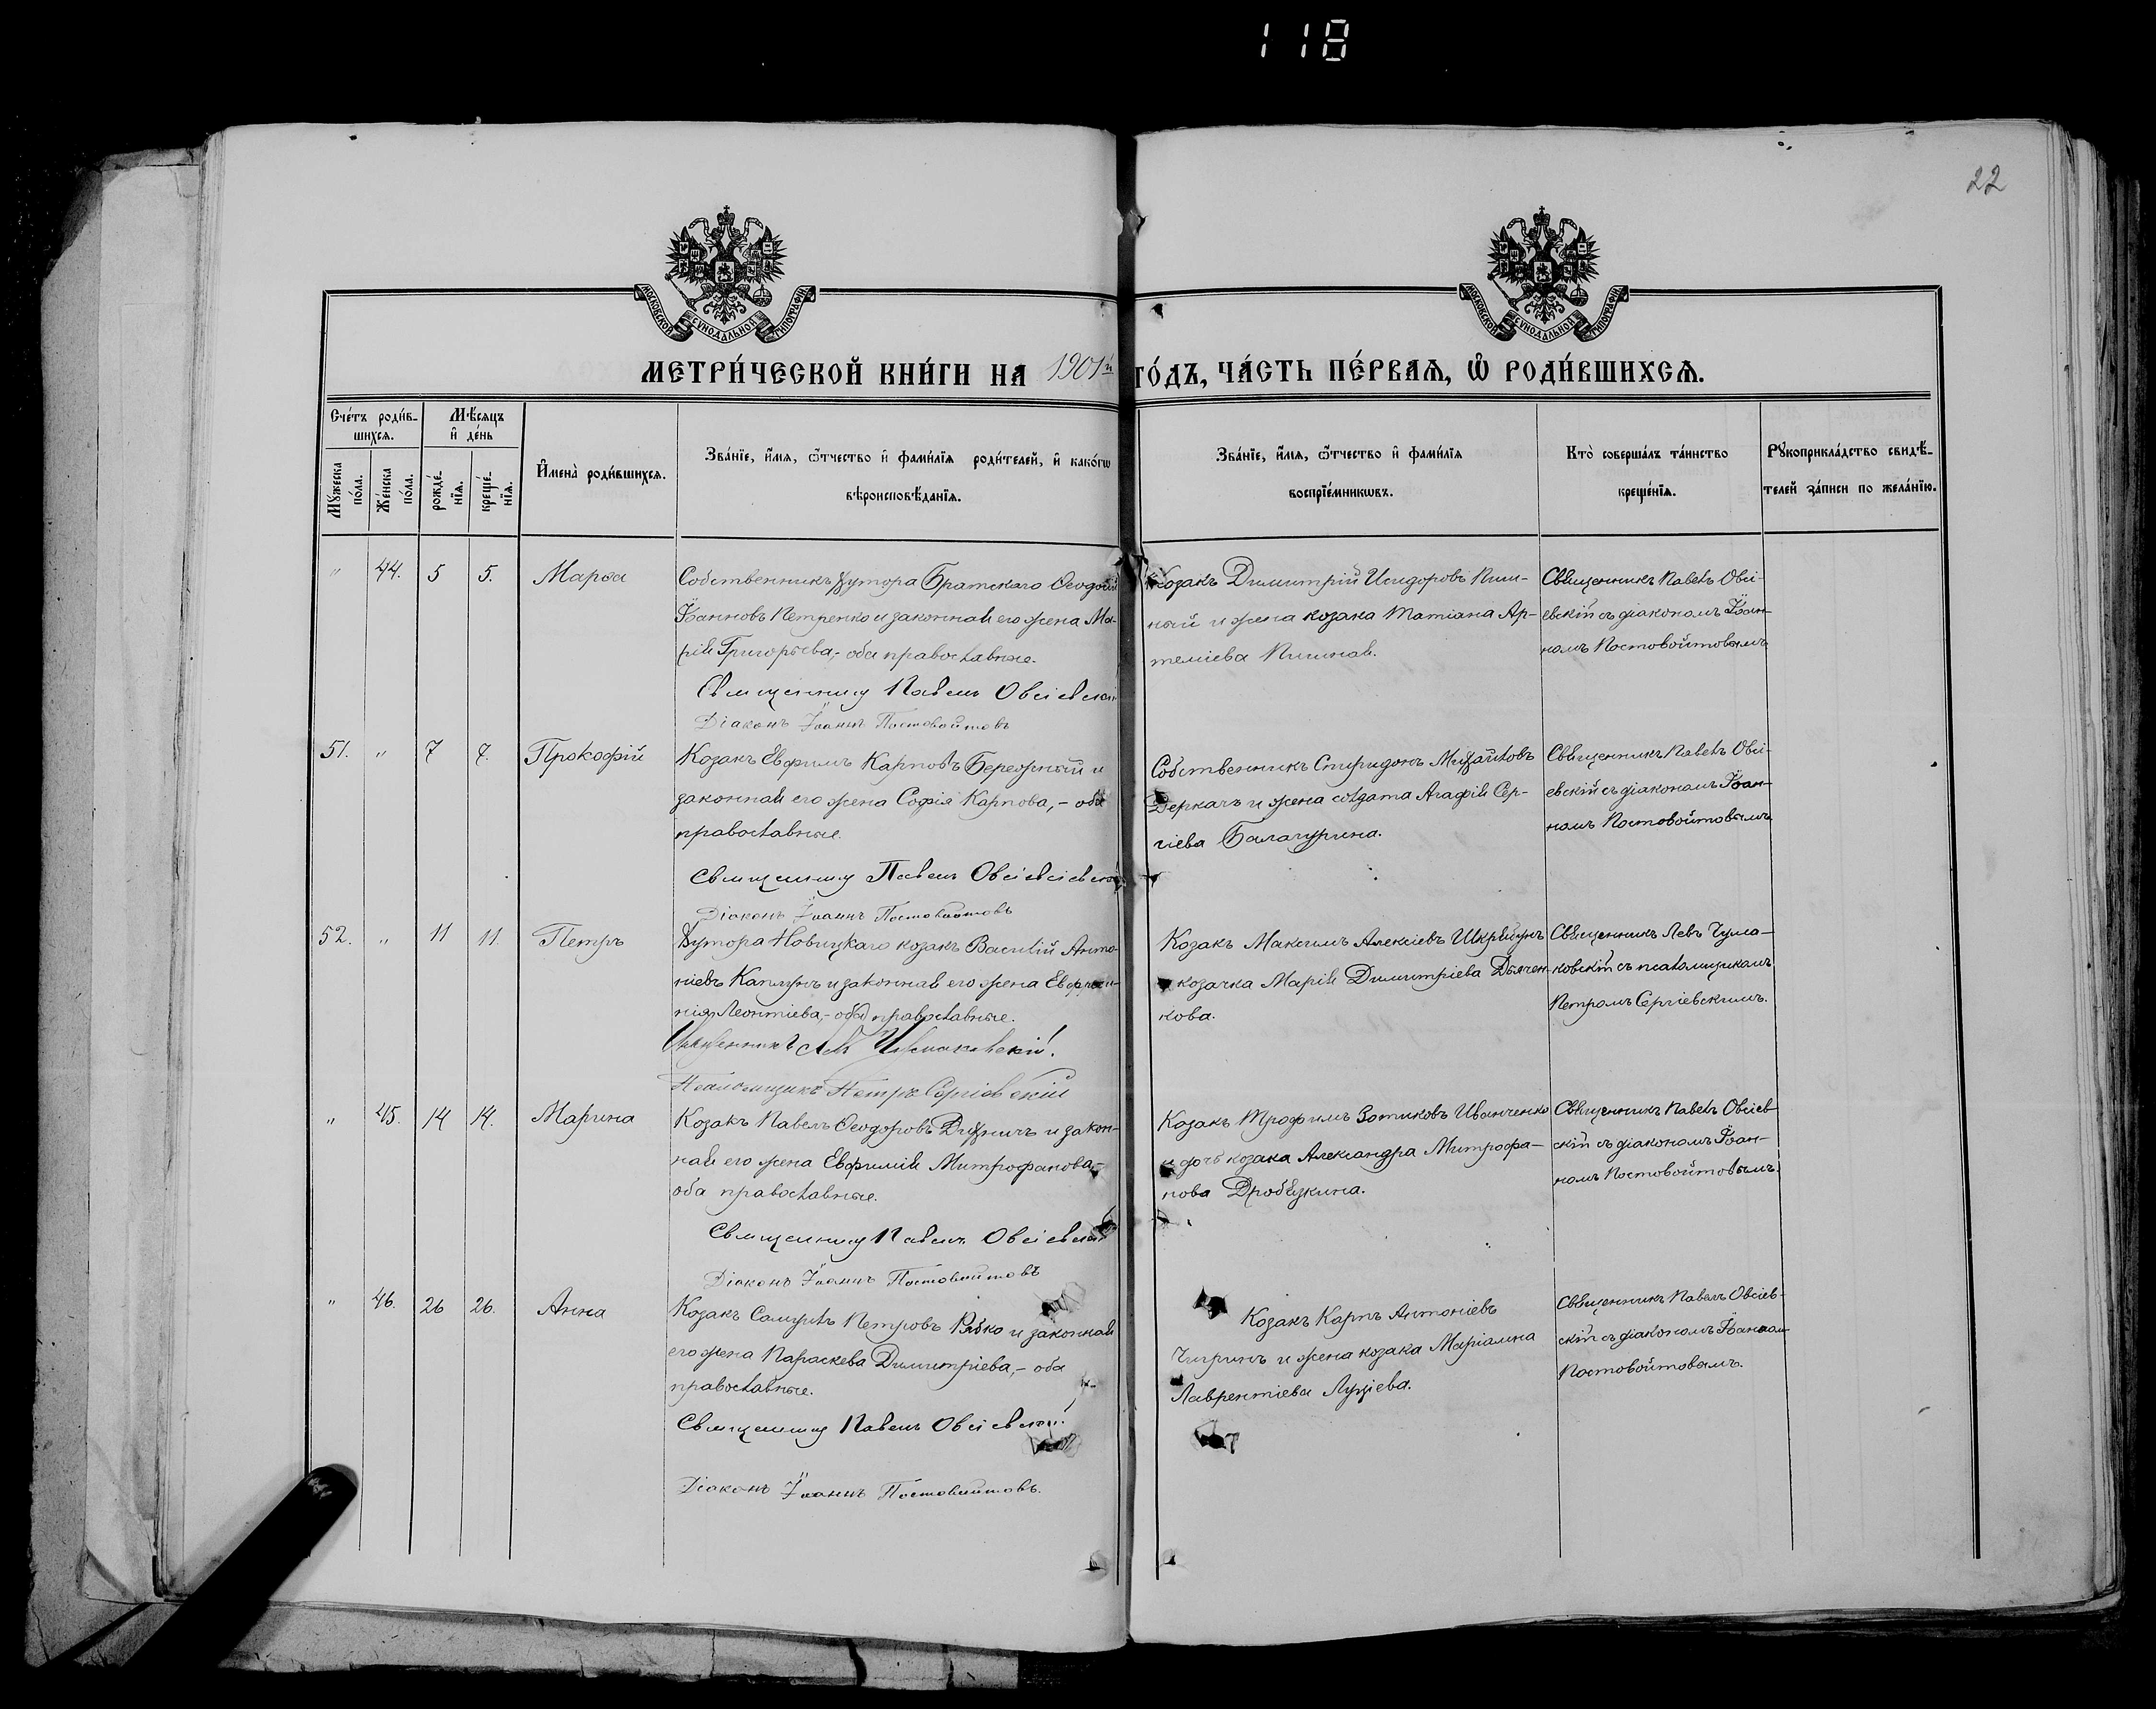 118
22
МОСКОВСКОЙ СУНОДАЛЬНОЙ ТИПОГРАФІИ
МОСКОВСКОЙ СУНОДАЛЬНОЙ ТИПОГРАФІИ
МЕТРИ́ЧЕСКОЙ КНИ́ГИ НА 1901й ГО́ДЪ, ЧА́СТЬ ПЕ́РВАЯ, Ѡ РОДИ́ВШИХСЯ.
Сче́тъ роди́в-
шихся.
Мѣ́сяцъ
и де́нь
Му́жеска
по́ла.
Же́нска
по́ла.
рожде́-
нія.
креще́-
нія.
Имена̀ роди́вшихся.
Зва́ніе, и́мя, ѻ҆́тчество и фами́лія роди́телей, и како́гѡ
вѣроисповѣ́данія.
Зва́ніе, и́мя, ѻ҆́тчество и фами́лія
воспріе́мникѡвъ.
Кто̀ соверша́лъ та́инство
креще́нія.
Рукоприкла́дство свидѣ́-
телей за́писи по жела́нію.
" 44. 5 5. Марѳа
Собственникъ хутора Братскаго Ѳеодосій
Іоанновъ Петренко и законная его жена Ма-
рія Григорьева,- оба православные.
Священникъ Павелъ Овсіевскій
Діаконъ Іоаннъ Постовойтовъ
Козакъ Димитрій Исидоровъ Пиш-
ный и жена козака Татіана Ар-
теміева Пишная.
Священникъ Павелъ Овсі-
евскій съ діакономъ Іоан-
номъ Постовойтовымъ
51. " 7 7. Прокофій
Козакъ Евфимъ Карповъ Бережный и
законная его жена Софія Карпова,- оба
православные.
Священникъ Павелъ Овсіевскій
Діаконъ Іоаннъ Постовойтовъ
Собственникъ Спиридонъ Михайловъ
Деркачъ и жена солдата Агафія Сер-
гіева Балагурина.
Священникъ Павелъ Овсі-
евскій съ діакономъ Іоан-
номъ Постовойтовымъ
52. " 11 11. Петръ
Хутора Новицкаго козакъ Василій Анто-
ніевъ Каплунъ и законная его жена Евфроси-
нія Леонтіева,- оба православные.
Священникъ Левъ Чумаковскій.
Псаломщикъ Петръ Сергіевскій
Козакъ Максимъ Алексіевъ Шкрябунъ
и козачка Марія Димитріева Дьячен-
кова.
Священникъ Левъ Чума-
ковскій съ псаломщикомъ
Петромъ Сергіевскимъ.
" 45. 14 14. Марина
Козакъ Павелъ Ѳеодоровъ Дихничъ и закон-
ная его жена Евфимія Митрофанова,-
оба православные.
Священникъ Павелъ Овсіевскій
Діаконъ Іоаннъ Постовойтовъ
Козакъ Трофимъ Зотиковъ Иванченко
и дочь козака Александра Митрофа-
нова Дробязкина.
Священникъ Павелъ Овсіев-
скій съ діакономъ Іоан-
номъ Постовойтовымъ.
" 46. 26 26. Анна
Козакъ Самуилъ Петровъ Рябко и законная
его жена Параскева Димитріева,- оба
православные.
Священникъ Павелъ Овсіевскій
Діаконъ Іоаннъ Постовойтовъ.
Козакъ Карпъ Антоніевъ
Чигринъ и жена козака Маріамна
Лаврентіева
Священникъ Павелъ Овсіев-
скій съ діакономъ Іоанномъ
Постовойтовымъ.